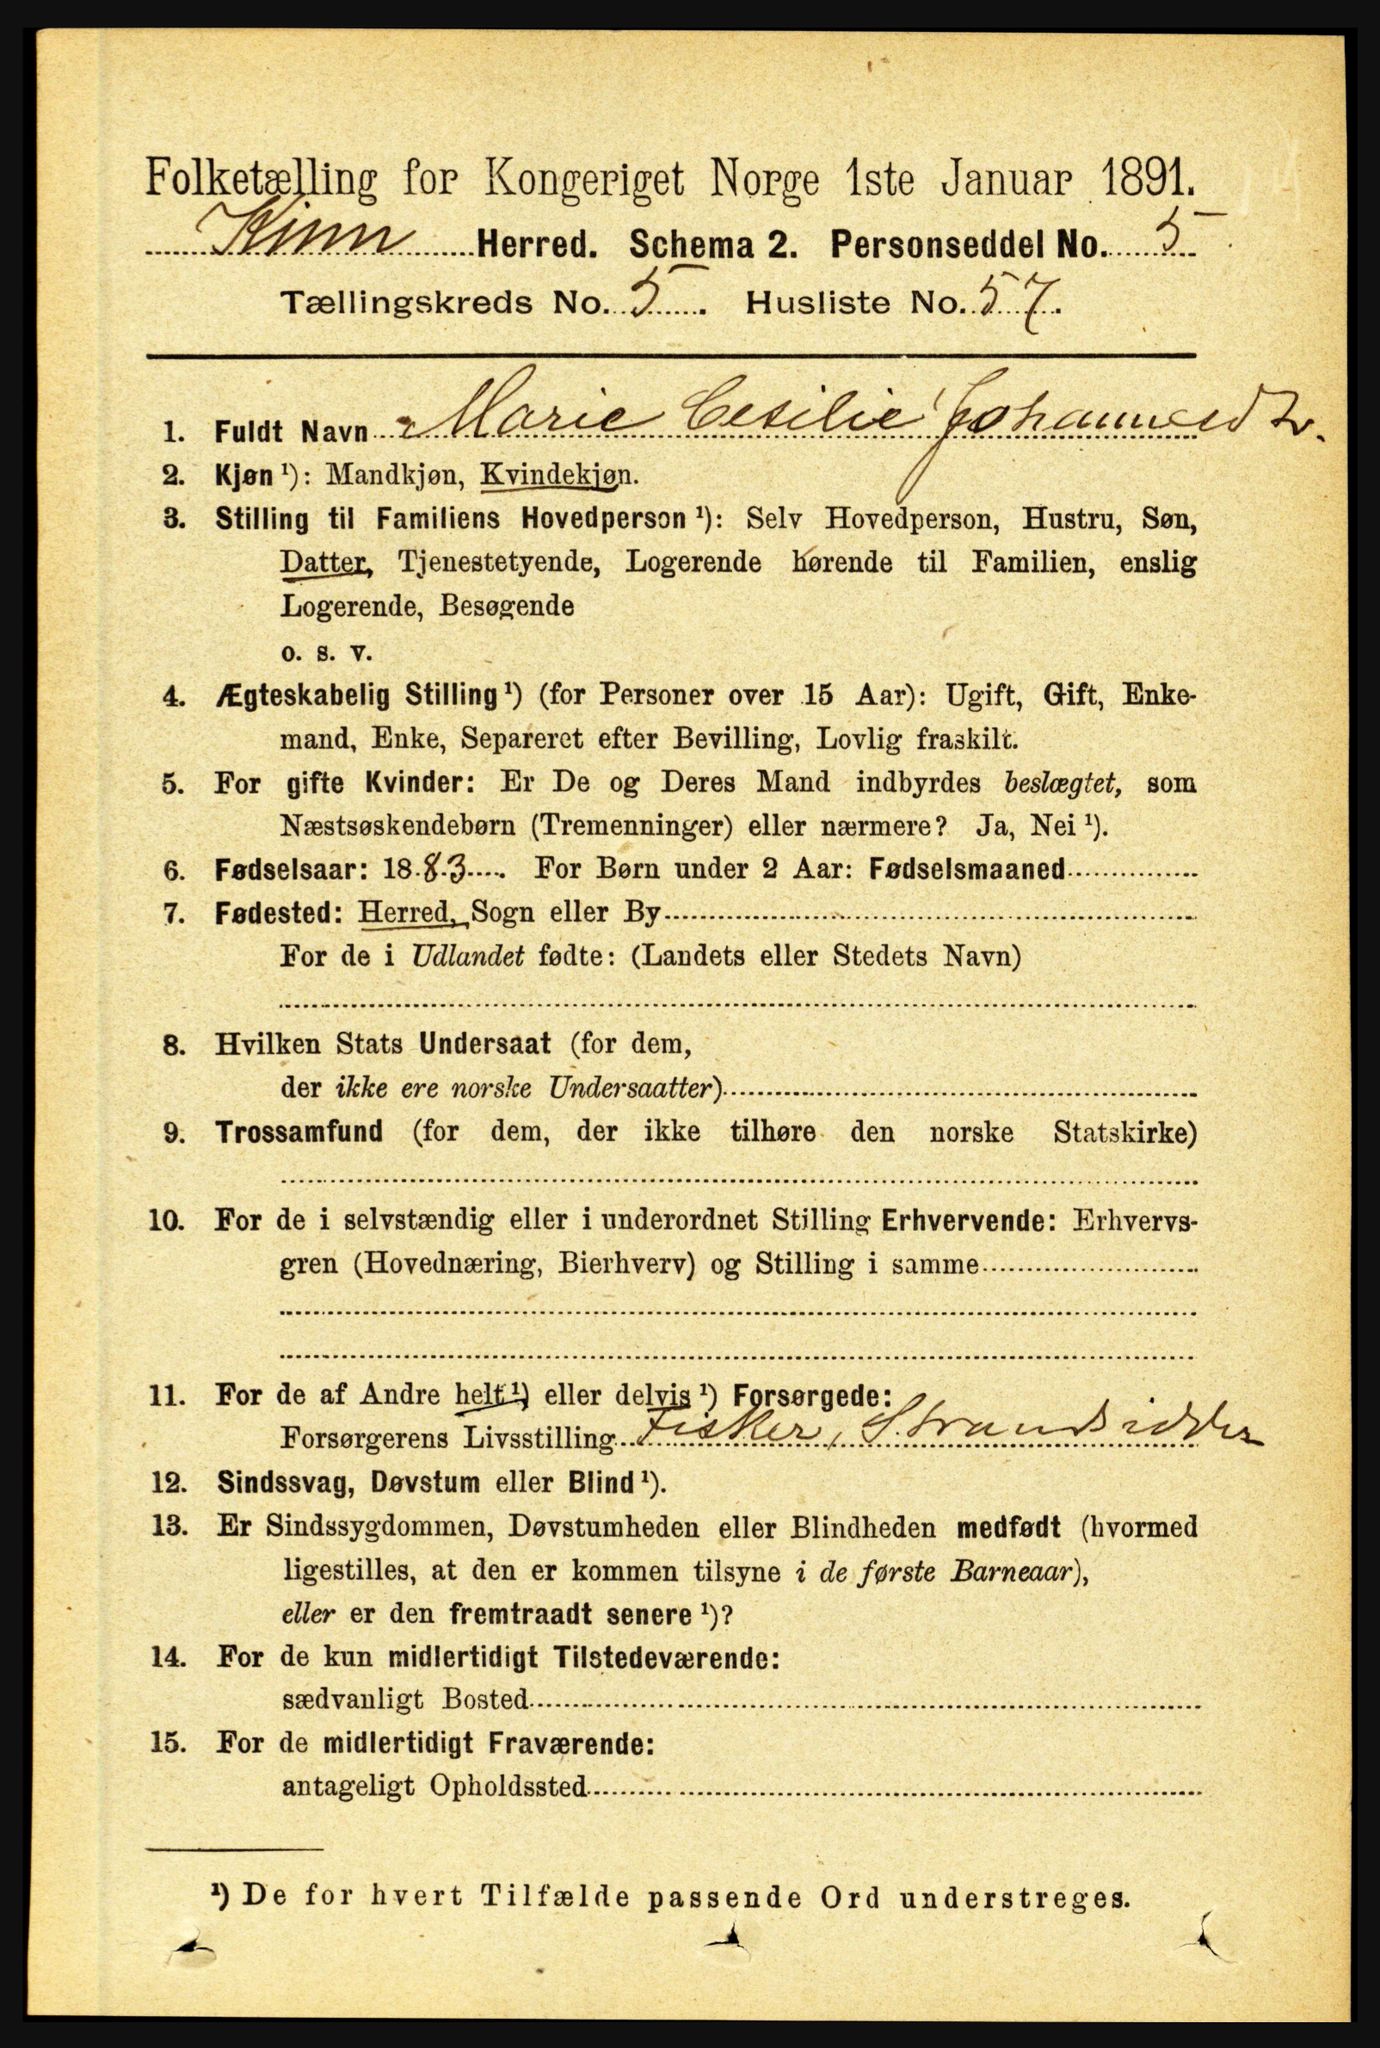 Folketælling for Kongeriget Norge 1ste Januar 1891.
Kinn Herred. Schema 2. Personseddel No. 5
Tællingskreds No. 5. Husliste No. 57.
1. Fuldt Navn Marie Cesilie Johannesdtr.
2. Kjøn ¹): Mandkjøn, Kvindekjøn.
3. Stilling til Familiens Hovedperson ¹): Selv Hovedperson, Hustru, Søn,
Datter, Tjenestetyende, Logerende hørende til Familien, enslig
Logerende, Besøgende
o. s. v.
4. Ægteskabelig Stilling ¹) (for Personer over 15 Aar): Ugift, Gift, Enke-
mand, Enke, Separeret efter Bevilling, Lovlig fraskilt.
5. For gifte Kvinder: Er De og Deres Mand indbyrdes beslægtet, som
Næstsøskendebørn (Tremenninger) eller nærmere? Ja, Nei ¹).
6. Fødselsaar: 1883. For Børn under 2 Aar: Fødselsmaaned
7. Fødested: Herred, Sogn eller By
For de i Udlandet fødte: (Landets eller Stedets Navn)
8. Hvilken Stats Undersaat (for dem,
der ikke ere norske Undersaatter)
9. Trossamfund (for dem, der ikke tilhøre den norske Statskirke)
10. For de i selvstændig eller i underordnet Stilling Erhvervende: Erhvervs-
gren (Hovednæring, Bierhverv) og Stilling i samme
11. For de af Andre helt ¹) eller delvis ¹) Forsørgede:
Forsørgerens Livsstilling Fisker, Strandsidder
12. Sindssvag, Døvstum eller Blind ¹).
13. Er Sindssygdommen, Døvstumheden eller Blindheden medfødt (hvormed
ligestilles, at den er kommen tilsyne i de første Barneaar),
eller er den fremtraadt senere ¹)?
14. For de kun midlertidigt Tilstedeværende:
sædvanligt Bosted
15. For de midlertidigt Fraværende:
antageligt Opholdssted
¹) De for hvert Tilfælde passende Ord understreges.